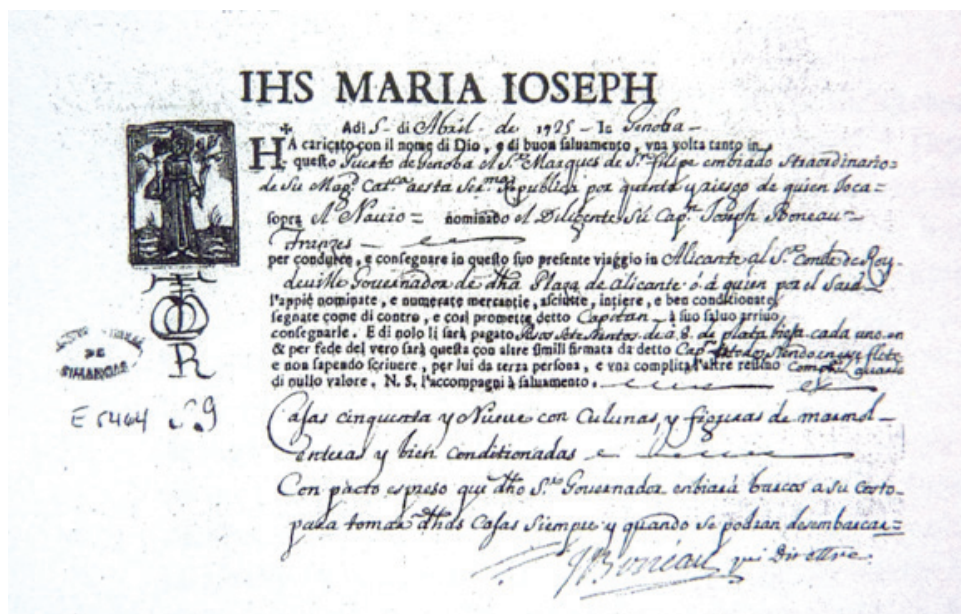 IHS MARIA IOSEPH
Adì 5 - di Abril - de 1725 - In Genoba -
HA caricato con il nome di Dio, e di buon saluamento, vna volta tanto in
questo Puerto de Genoba el S.r Marques de S.n Felipe embiado straordinario=
de Su Mag.d Cat.ca a esta Ser.ma Republica por quenta y riesgo de quien toca=
sopra el Navio = nominato el Diligente su Cap.n Joseph Boneau=
franzes -
per condurre, e consegnare in questo suo presente viaggio in Alicante al S.r Conde de Roy-
deville Governador de dha Plaza de Alicante ó á quien por el será
l'appiè nominate, e numerate mercantie, asciutte, intiere, e ben conditionate
segnate come di contro, e così promette detto Capitan - à suo saluo arriuo
consegnarle. E di nolo li sarà pagato Pesos sete sientos de à 8. de plata bieja cada uno en
& per fede del vero sarà questa con altre simili firmata da detto Cap.n
e non sapendo scriuere, per lui da terza persona, e vna complita l'altre restino
di nullo valore. N. S. l'accompagni à saluamento.
Casas cinquenta y Nueve con Culunas, y figuras de marmol-
enteras y bien Conditionadas
Con pacto espreso qui dho S.r Governador enbiará barcos a su Costo-
para tomar dhas Casas siempre y quando se podran desembarcar=
JBoneau
T
R
DE
SIMANCAS
E 5464 69